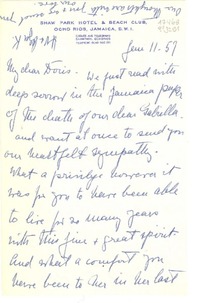 SHAW PARK HOTEL & BEACH CLUB
OCHO RIOS, JAMAICA, B.W.I.
Jan. 11. 57
My dear Doris. We just read with
deep sorrow in the Jamaica paper
of the death of our dear Gabriella.
and want at once to send you
our heartfelt sympathy.
What a privilege however it
was for you to have been able
to live for so many years
with this fine & great spirit
And what a comfort you
have been to her in her last